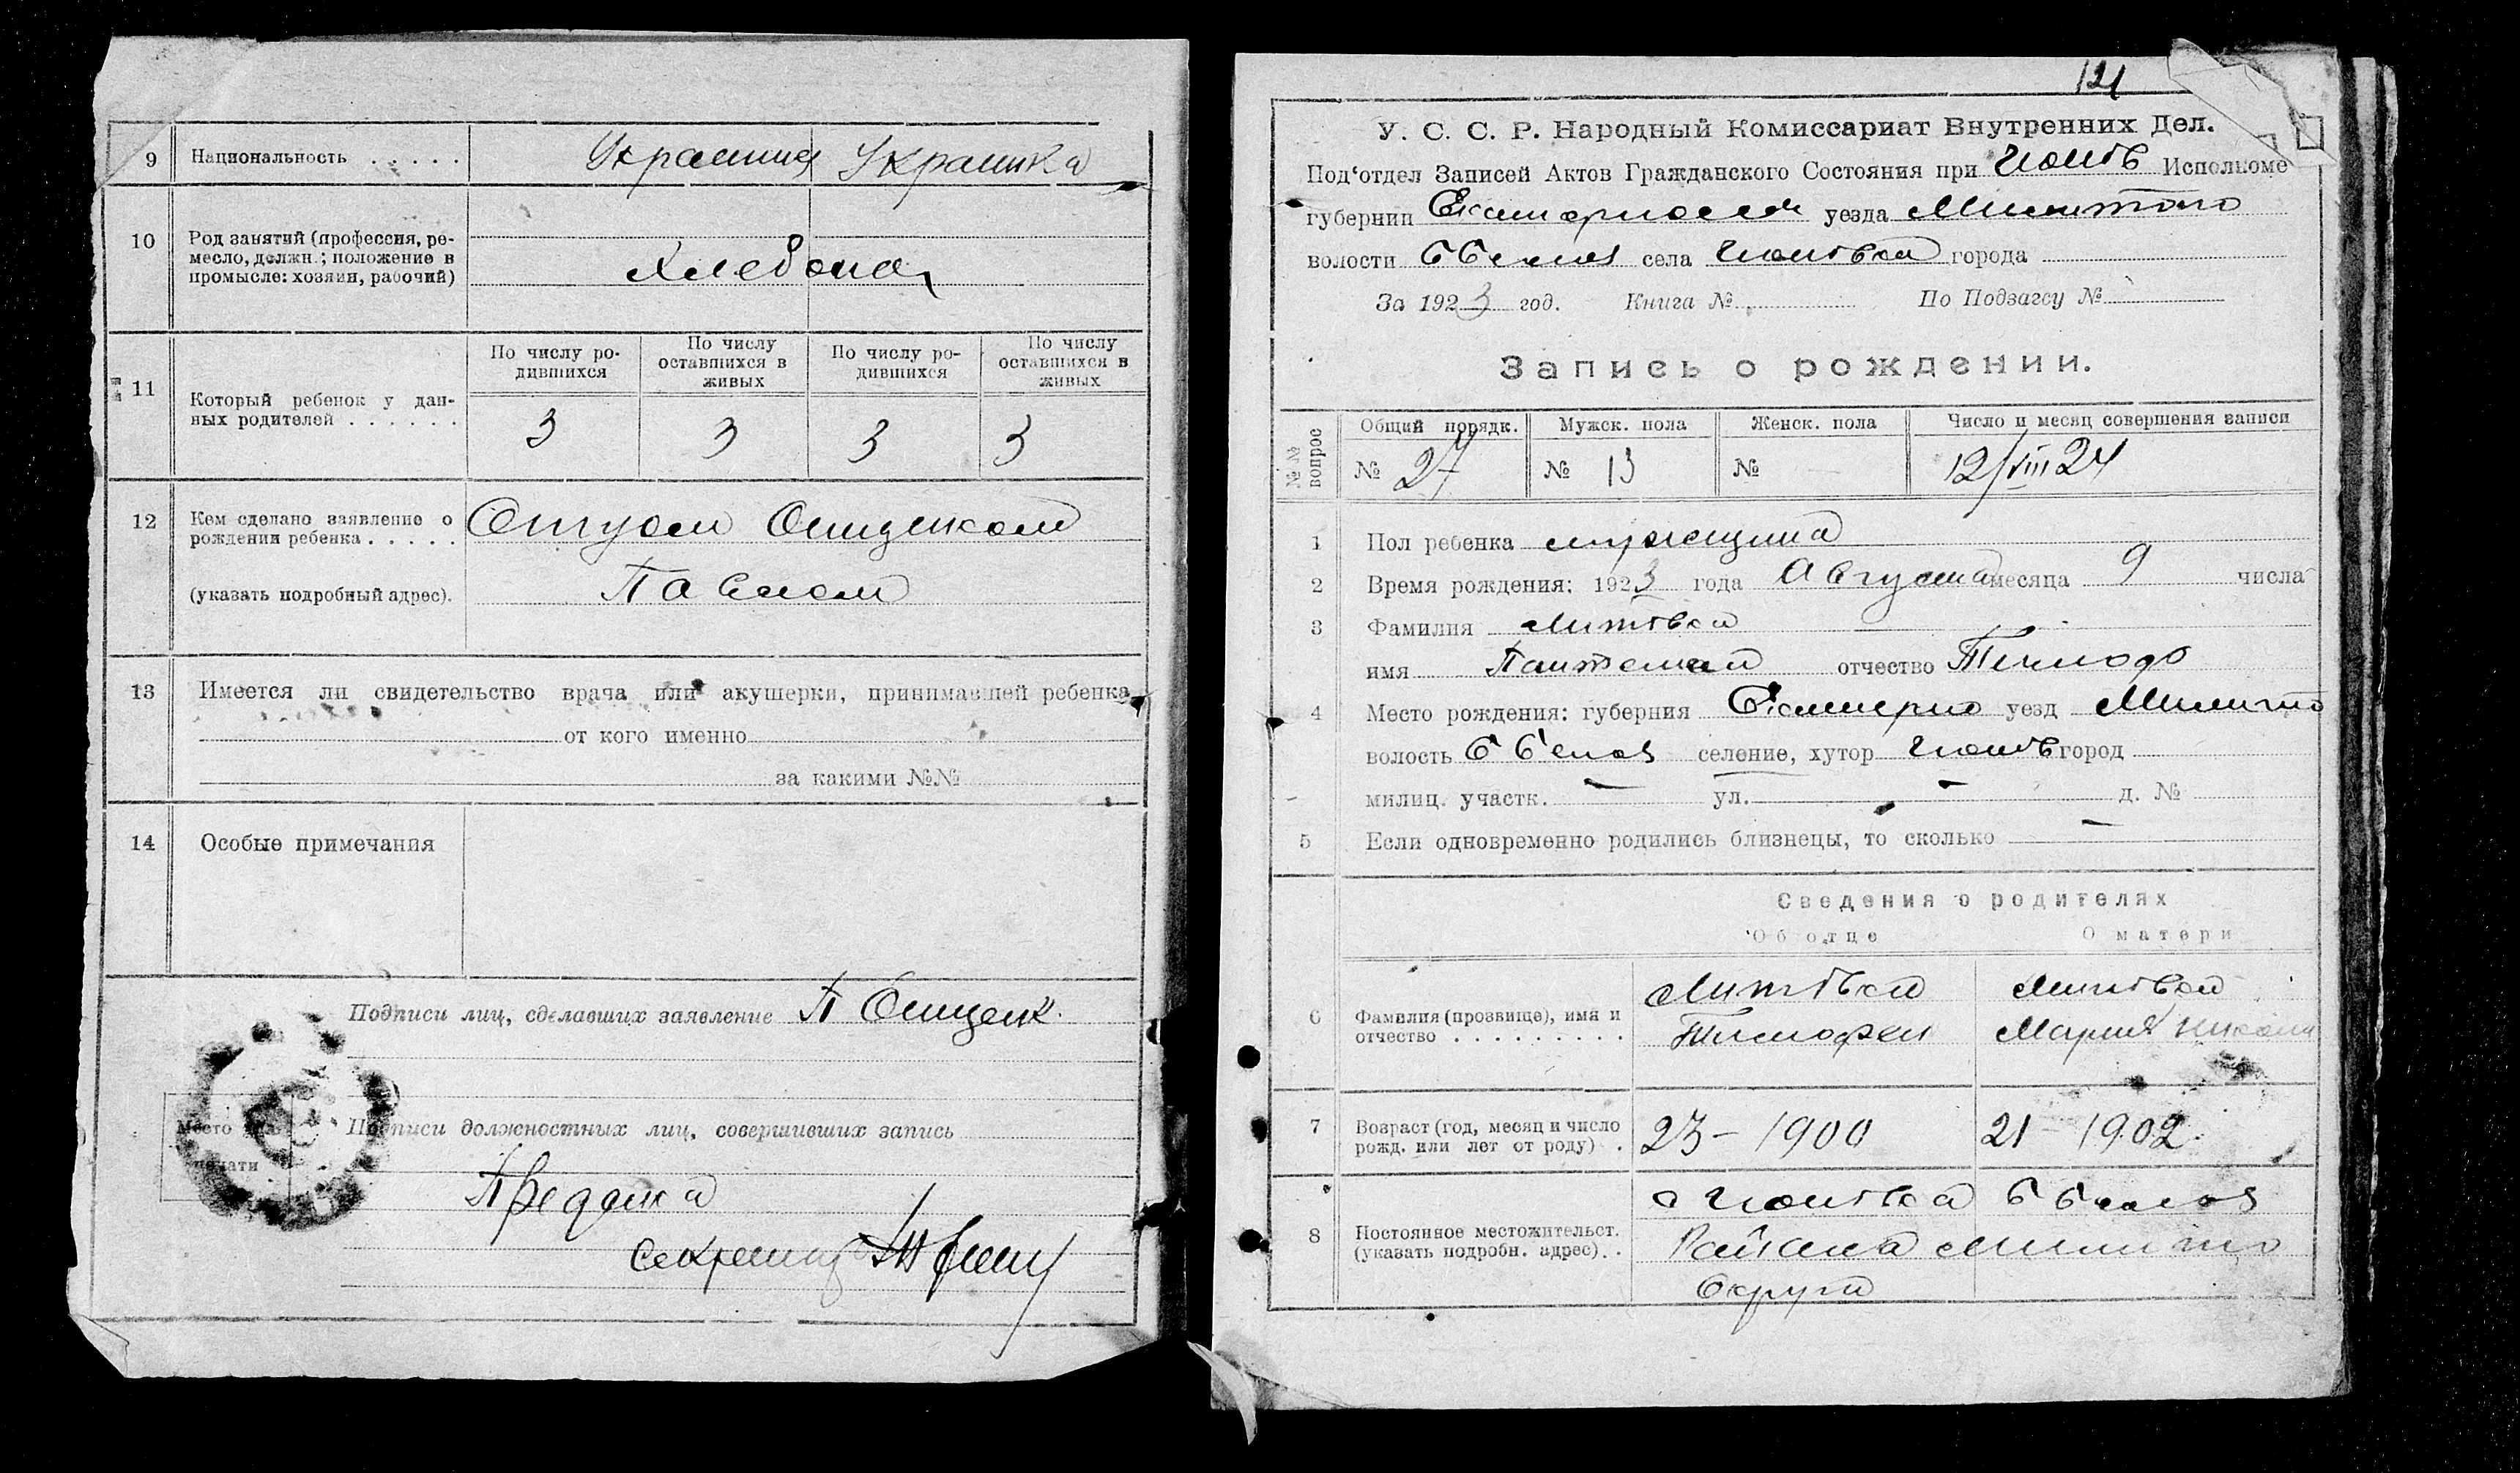 9 Национальность Украинец Украинка
10 Род занятий (профессия, ре-
месло, должн.; положение в
промысле: хозяин, рабочий)
Хлебопа
11 Который ребенок у дан-
ных родителей
По числу ро-
дившихся
По числу
оставшихся в
живых
По числу ро-
дившихся
По числу
оставшихся в
живых
3 3 3 3
12 Кем сделано заявление о рождении ребенка
(указать подробный адрес).
Отцом Онищенком
Павлом
13 Имеется ли свидетельство врача или акушерки, принимавшей ребенка
от кого именно
за какими №№
14 Особые примечания
Подписи лиц, сделавших заявление П Онищенк.
Место для
печати
Подписи должностных лиц, совершивших запись
Секретарь
121
У. С. С. Р. Народный Комиссариат Внутренних Дел.
Под‘отдел Записей Актов Гражданского Состояния при Исполкоме
губернии уезда
волости села города
За 1923 год. Книга № По Подзагсу №
Запись о рождении.
№№ вопрос
Общий порядк. Мужск. пола Женск. пола Число и месяц совершения записи
№ 27 № 13 № 12/VIII 24
1 Пол ребенка мужчина
2 Время рождения: 1923 года Августа месяца 9 числа
3 Фамилия Литвин
имя отчество Тимофе
4 Место рождения: губерния уезд
волость селение, хутор город
милиц. участк. — ул. — д. №
5 Если одновременно родились близнецы, то сколько —
Сведения о родителях
Об отце О матери
6 Фамилия (прозвище), имя и
отчество
Литвин
Тимофей
Литвин
Мария
7 Возраст (год, месяц и число
рожд. или лет от роду) .
23 – 1900 21 – 1902
8 Постоянное местожительст.
(указать подробн. адрес). .
Района
Округа